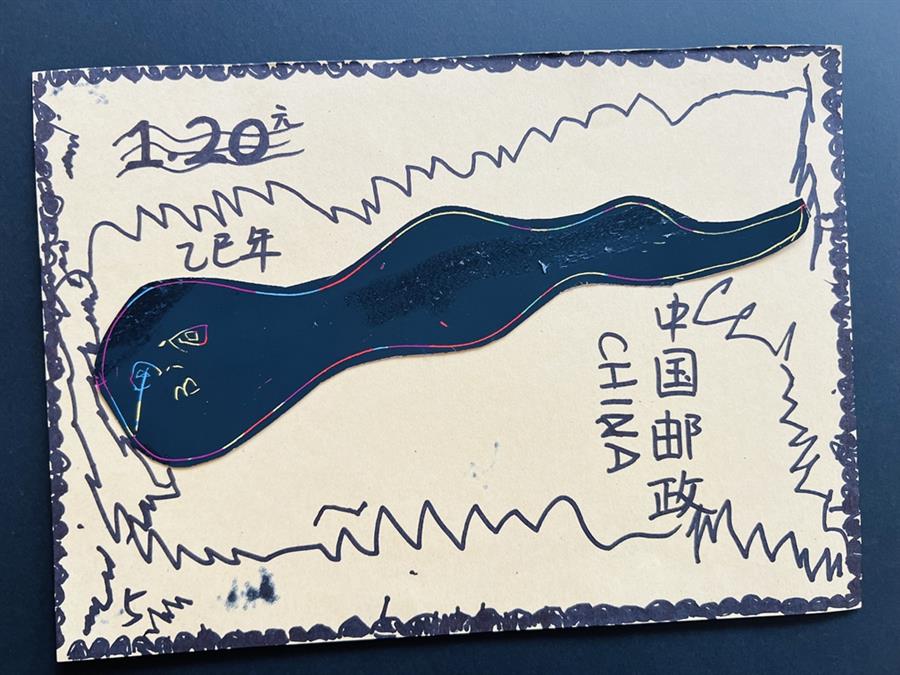 1.20元
乙巳年
中国邮政
CHINA